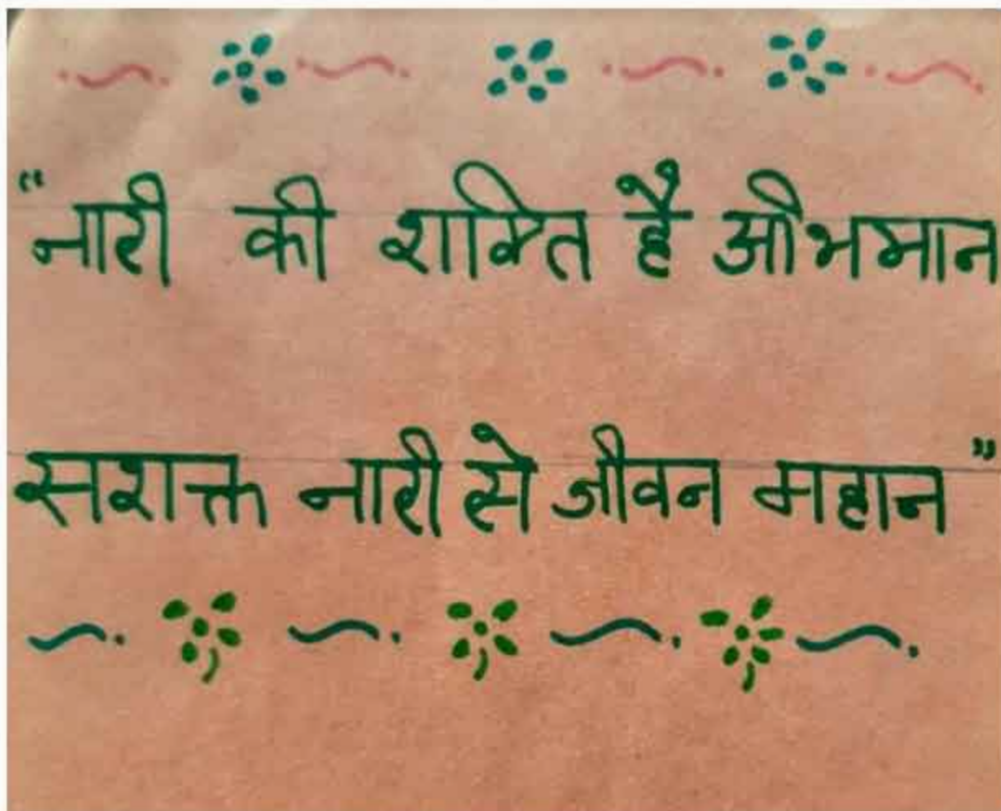 "नारी की शक्ति है अभिमान
सशक्त नारी से जीवन महान"